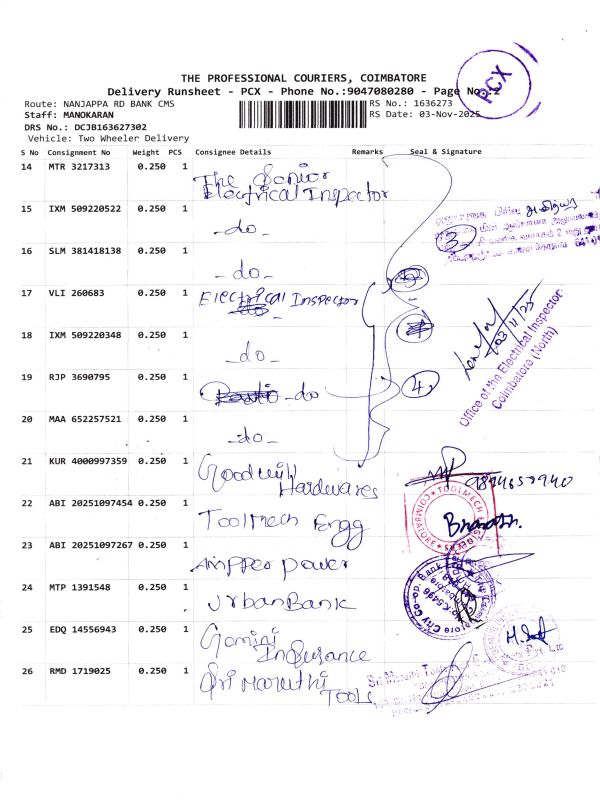 PCX
THE PROFESSIONAL COURIERS, COIMBATORE
Delivery Runsheet - PCX - Phone No.:9047080280 - Page No.:2
Route: NANJAPPA RD BANK CMS RS No.: 1636273
Staff: MANOKARAN RS Date: 03-Nov-2025
DRS No.: DCJB163627302
Vehicle: Two Wheeler Delivery
S No Consignment No Weight PCS Consignee Details Remarks Seal & Signature
14 MTR 3217313 0.250 1 The Senior
Electrical Inspector
15 IXM 509220522 0.250 1 -do-
3
16 SLM 381418138 0.250 1 -do-
17 VLI 260683 0.250 1 Electrical Inspector
03/11/25
Office of the Electrical Inspector
Coimbatore (North)
18 IXM 509220348 0.250 1 -do-
19 RJP 3690795 0.250 1 -do- 4
20 MAA 652257521 0.250 1 -do-
21 KUR 4000997359 0.250 1 Goodwill
Hardwares
22 ABI 20251097454 0.250 1 Toolmech Engg
TOOLMECH
COIMBATORE
23 ABI 20251097267 0.250 1 Ampper Power
24 MTP 1391548 0.250 1 Urban Bank
City Co-op Bank
25 EDQ 14556943 0.250 1 Gemini
Insurance
26 RMD 1719025 0.250 1 Sri Maruthi
Tools
Sri Maruthi Tools